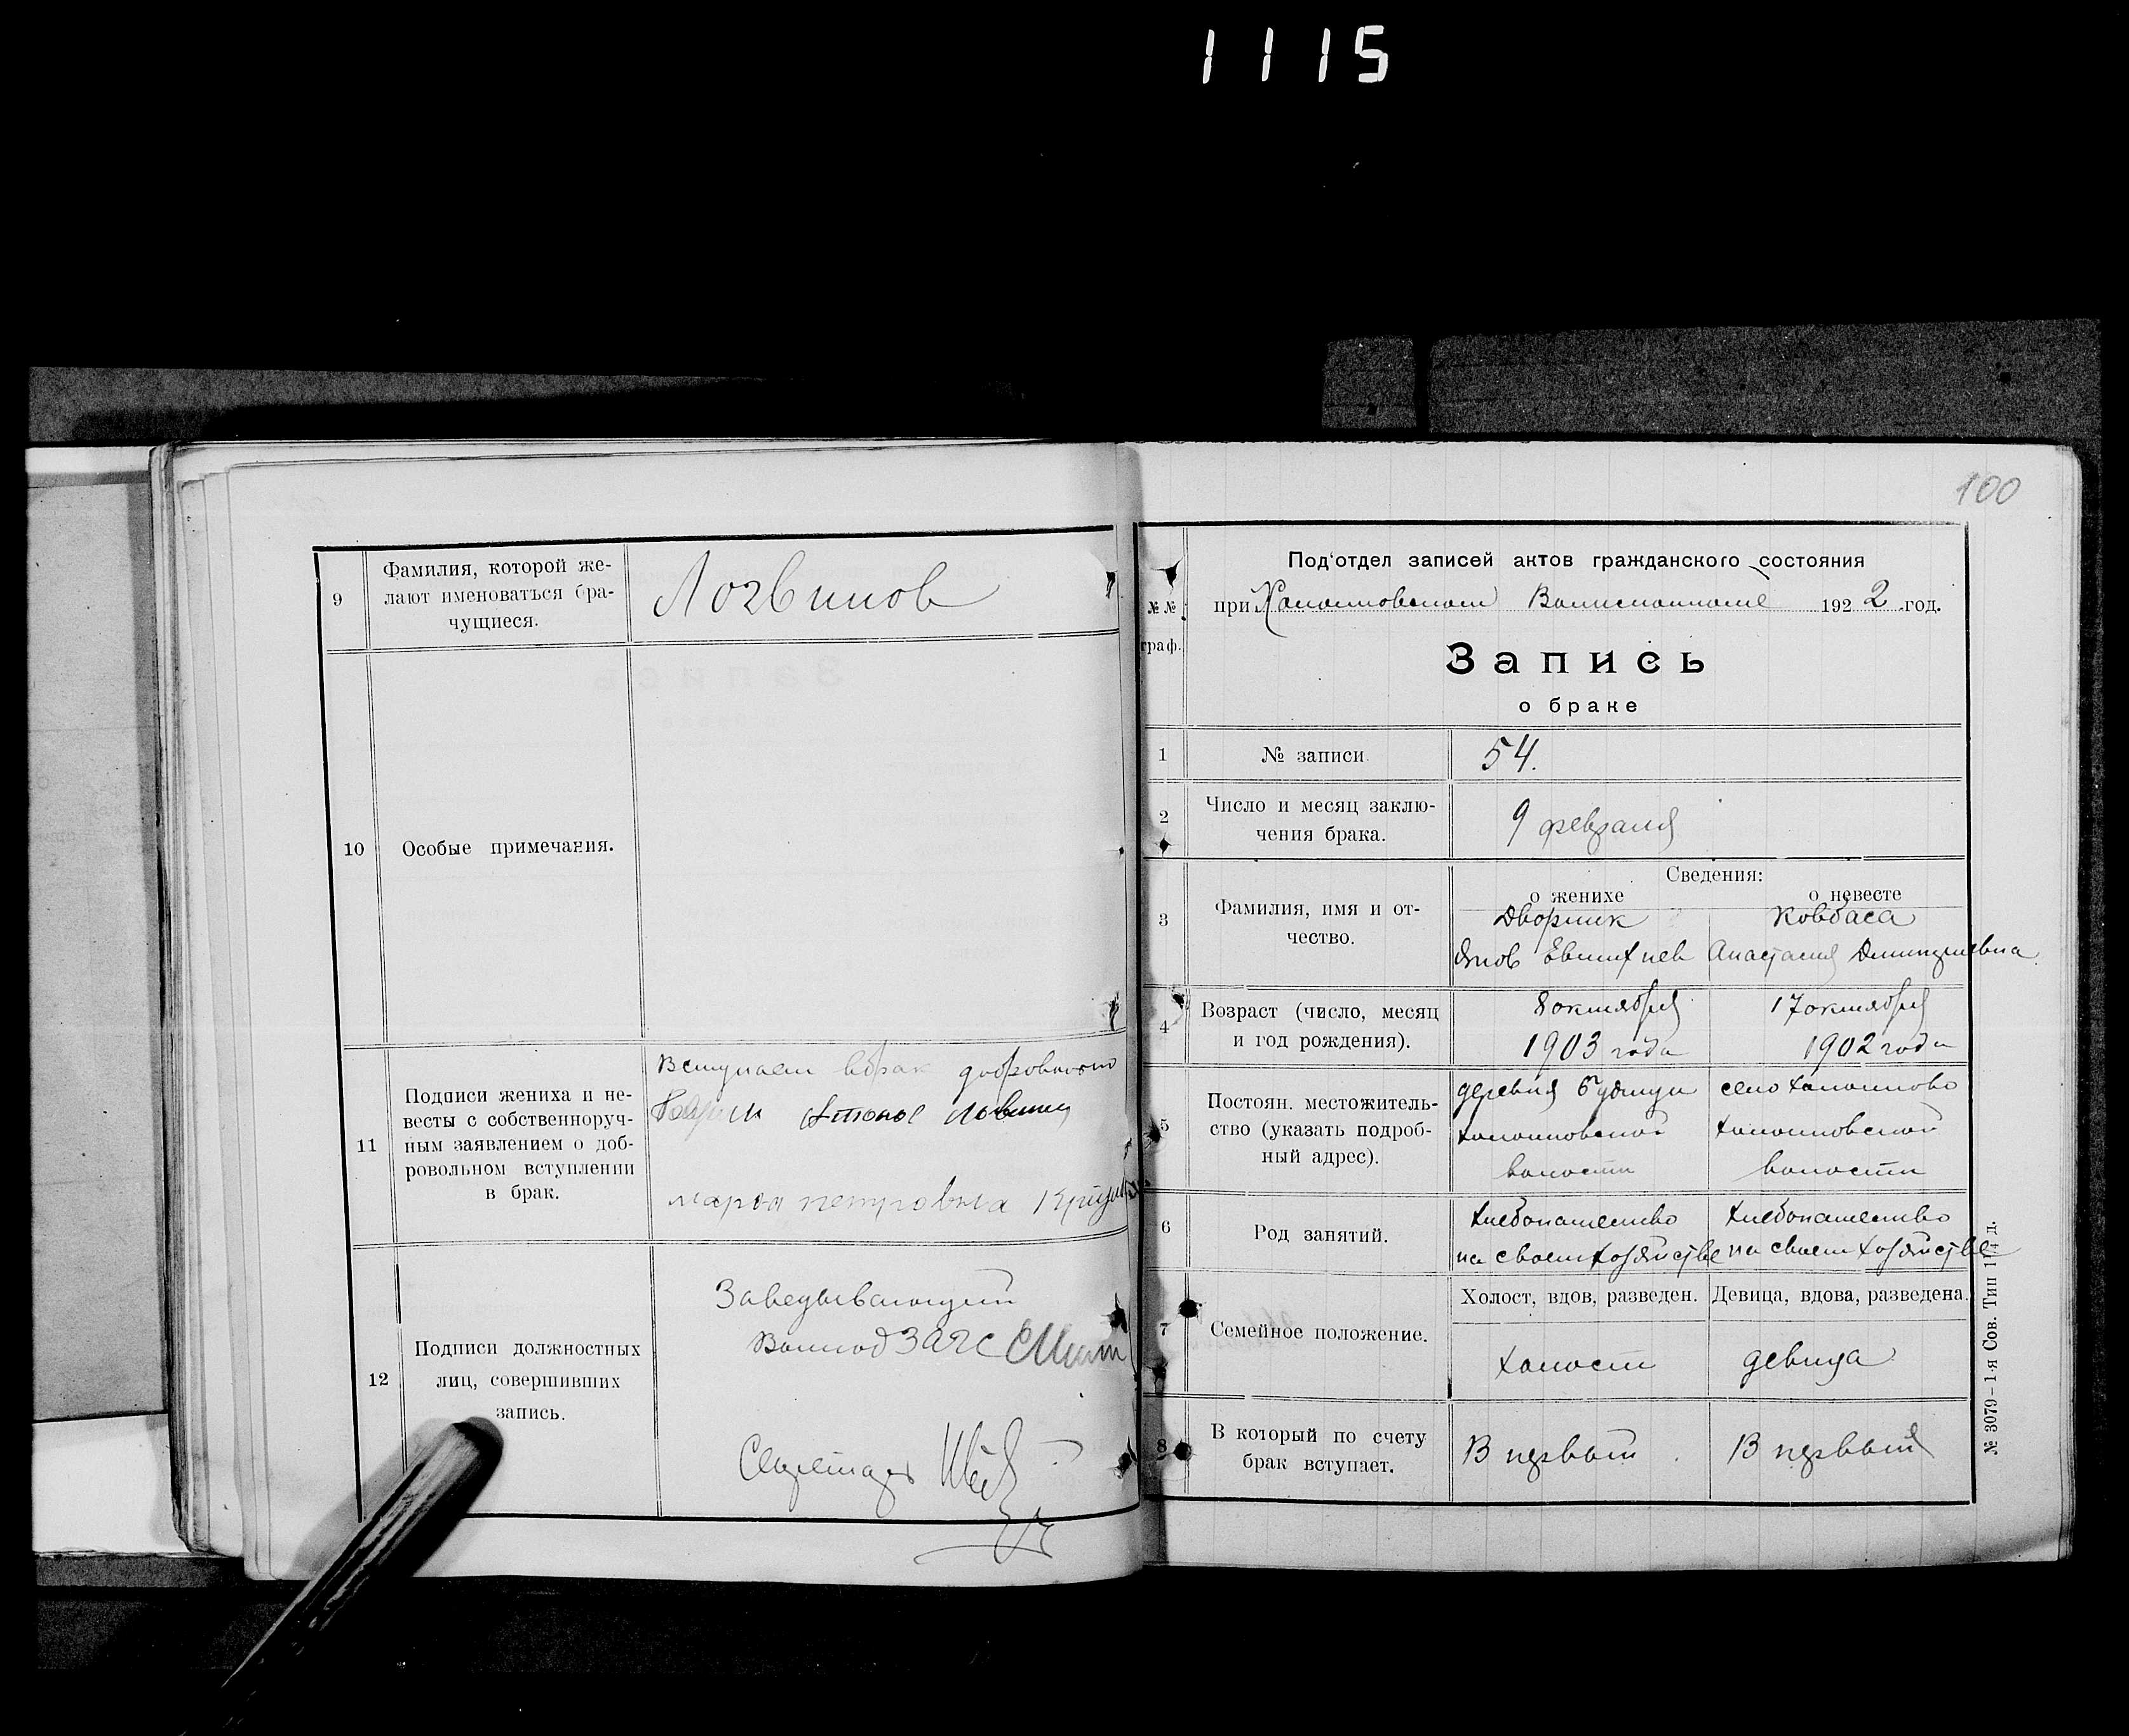 1115
9
Фамилия, которой же-
лают именоваться бра-
чущиеся.
Логвинов
10
Особые примечания.
11
Подписи жениха и не-
весты с собственноруч-
ным заявлением о доб-
ровольном вступлении
в брак.
Вступаем в брак добровольно
марфа петровна
12
Подписи должностных
лиц, совершивших
запись.
Заведывающий
ЗАГС
Секретарь
100
№№
граф.
Под'отдел записей актов гражданского состояния
при 1922 год.
Запись
о браке
1
№ записи
54.
2
Число и месяц заклю-
чения брака.
9 февраля
Сведения:
о женихе
о невесте
3
Фамилия, имя и от-
чество.
Дворник
Ковбаса
Яков Евтихиев
Анастасия Димитриевна
4
Возраст (число, месяц
и год рождения).
8 октября
1903 года
17 октября
1902 года
5
Постоян. местожитель-
ство (указать подроб-
ный адрес).
деревня
волости
село
волости
6
Род занятий.
хлебопашество
на своем хозяйстве
хлебопашество
на своем хозяйстве
7
Семейное положение.
Холост, вдов, разведен.
Девица, вдова, разведена.
холост
девица
8
В который по счету
брак вступает.
В первый
В первый
№ 3079-1-я Сов. Тип 174 д.